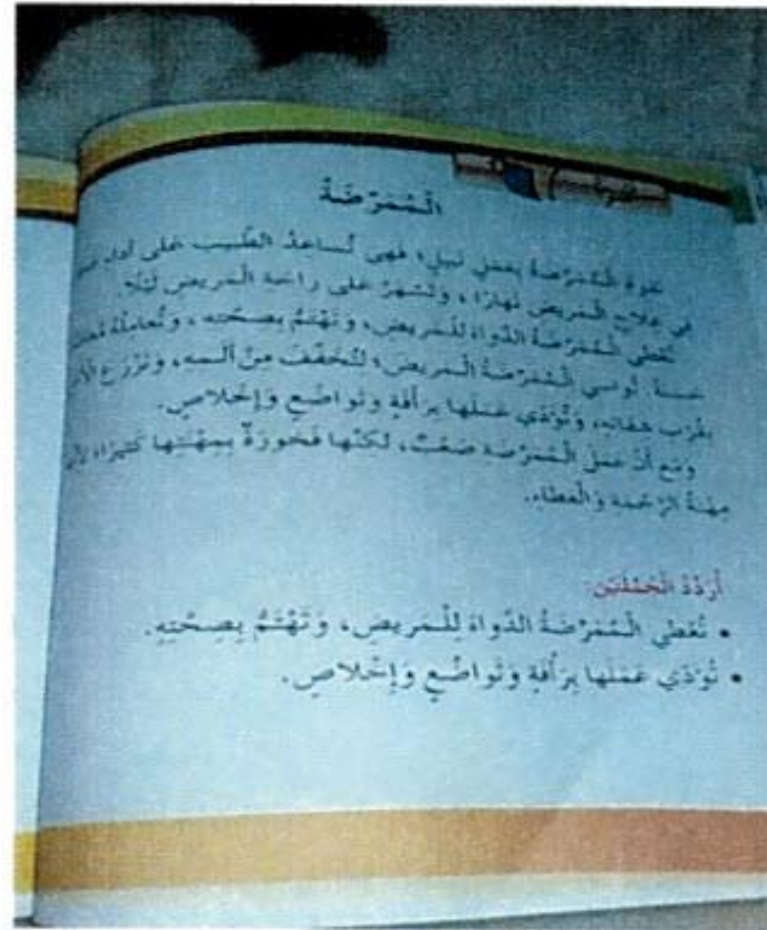 الْمُمَرِّضَةُ
الْمُمَرِّضَةُ بِعَمَلٍ نَبِيلٍ؛ فَهِيَ تُسَاعِدُ الطَّبيبَ عَلى أَداءِ
في عِلاجِ الْمَريضِ نَهارًا، وَتَسْهَرُ عَلى راحَةِ الْمَريضِ لَيْلًا.
تُعْطي الْمُمَرِّضَةُ الدَّواءَ لِلْمَريضِ، وَتَهْتَمُّ بِصِحَّتِهِ، وَتُعامِلُهُ
الْمُمَرِّضَةُ الْمَريضَ؛ لِتُخَفِّفَ مِنْ أَلَمِهِ، وَتَزْرَعُ
بِقُرْبِ شِفائِهِ، وَتُؤَدّي عَمَلَها بِرَأْفَةٍ وَتَواضُعٍ وَإِخْلاصٍ.
وَمَعَ أَنَّ عَمَلَ الْمُمَرِّضَةِ صَعْبٌ، لكِنَّها فَخورَةٌ بِمِهْنَتِها كَثيرًا؛
مِهْنَةُ الرَّحْمَةِ وَالْعَطاءِ.
أُرَدِّدُ الْجُمْلَتَيْنِ:
• تُعْطي الْمُمَرِّضَةُ الدَّواءَ لِلْمَريضِ، وَتَهْتَمُّ بِصِحَّتِهِ.
• تُؤَدّي عَمَلَها بِرَأْفَةٍ وَتَواضُعٍ وَإِخْلاصٍ.